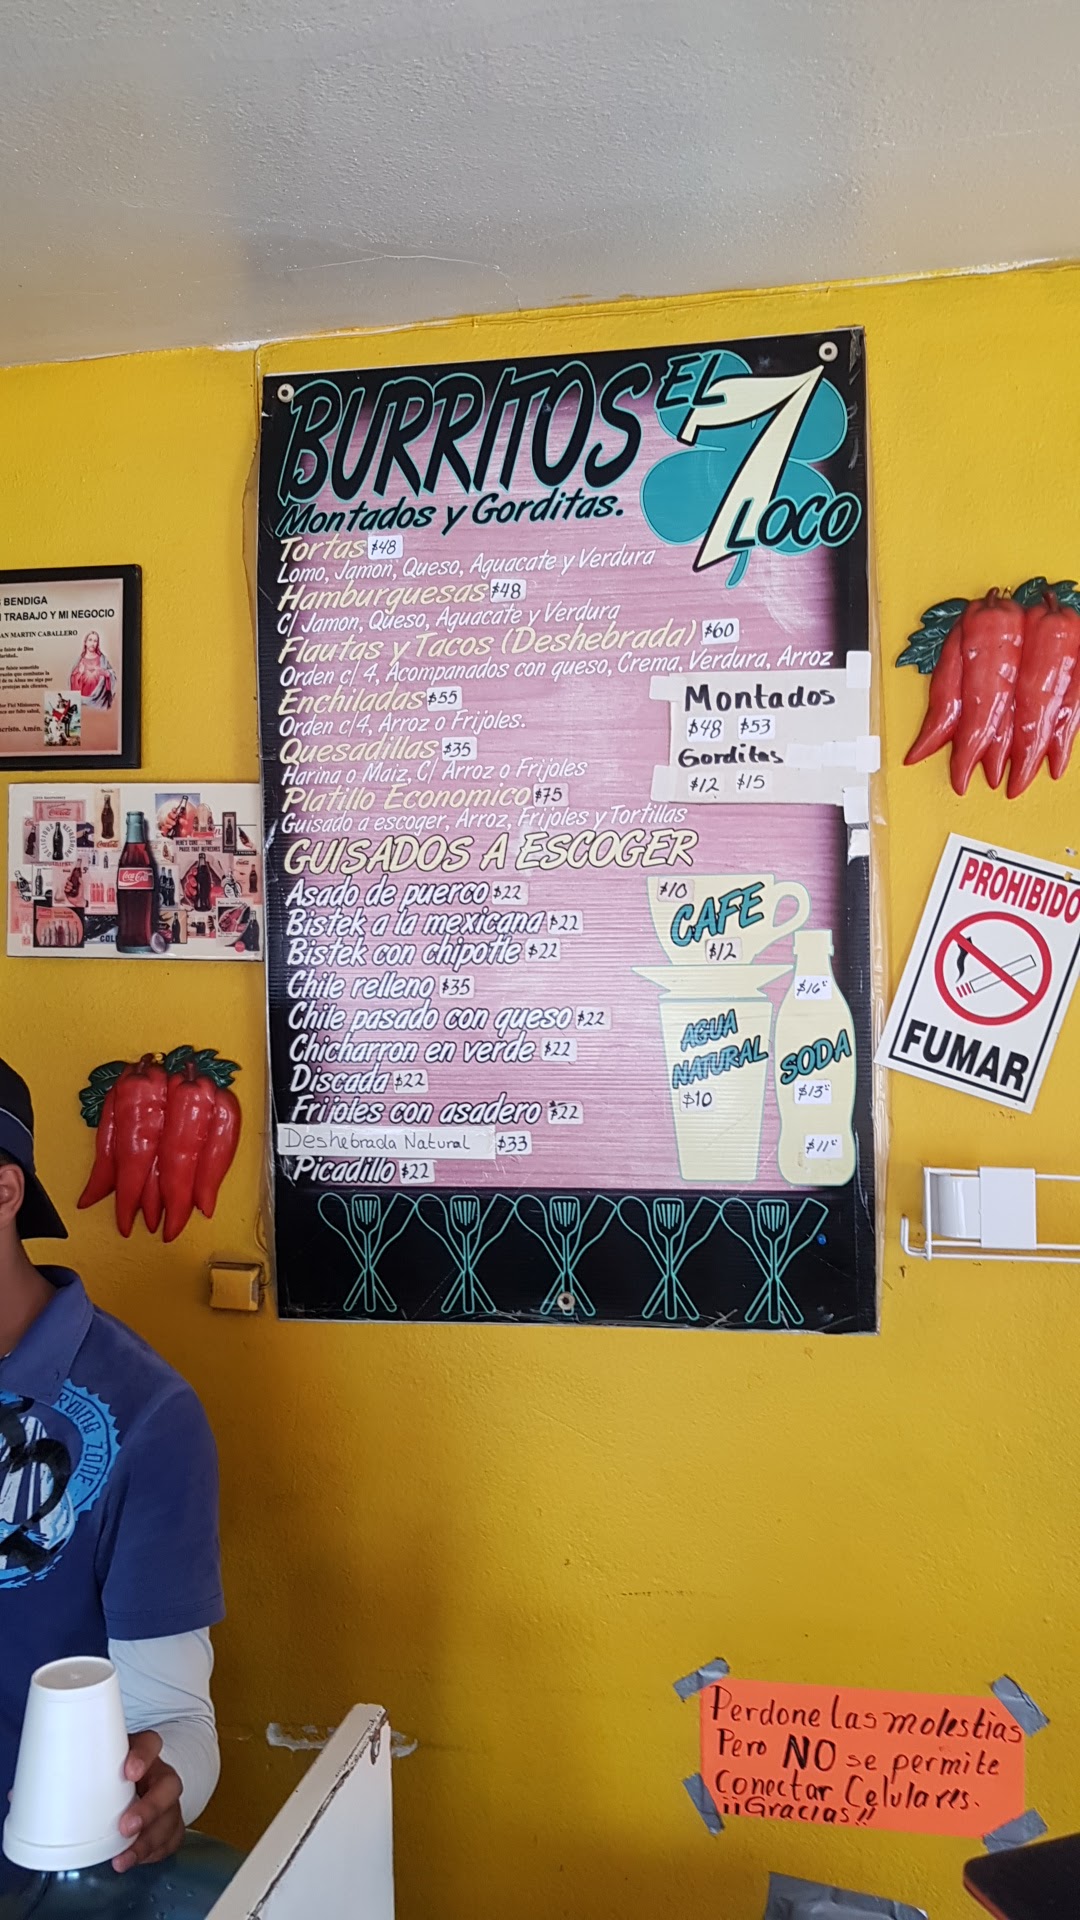 BURRITOS EL 7 LOCO
Montados y Gorditas.
Tortas $48
Lomo, Jamon, Queso, Aguacate y Verdura
Hamburguesas $48
C/ Jamon, Queso, Aguacate y Verdura
Flautas y Tacos (Deshebrada) $60
Orden c/ 4, Acompanados con queso, Crema, Verdura, Arroz
Enchiladas $55
Orden c/4, Arroz o Frijoles.
Quesadillas $35
Harina o Maiz, C/ Arroz o Frijoles
Platillo Economico $75
Guisado a escoger, Arroz, Frijoles y Tortillas
Montados
$48 $53
Gorditas
$12 $15
GUISADOS A ESCOGER
Asado de puerco $22
Bistek a la mexicana $22
Bistek con chipotle $22
Chile relleno $35
Chile pasado con queso $22
Chicharron en verde $22
Discada $22
Frijoles con asadero $22
Deshebrada Natural $33
Picadillo $22
$10
CAFE
$12
AGUA
NATURAL
$10
$16
SODA
$13
$11
BENDIGA
TRABAJO Y MI NEGOCIO
SAN MARTIN CABALLERO
Coca-Cola
PROHIBIDO
FUMAR
ZONE
Perdone Las molestias
Pero NO se permite
Conectar Celulares.
¡¡Gracias!!